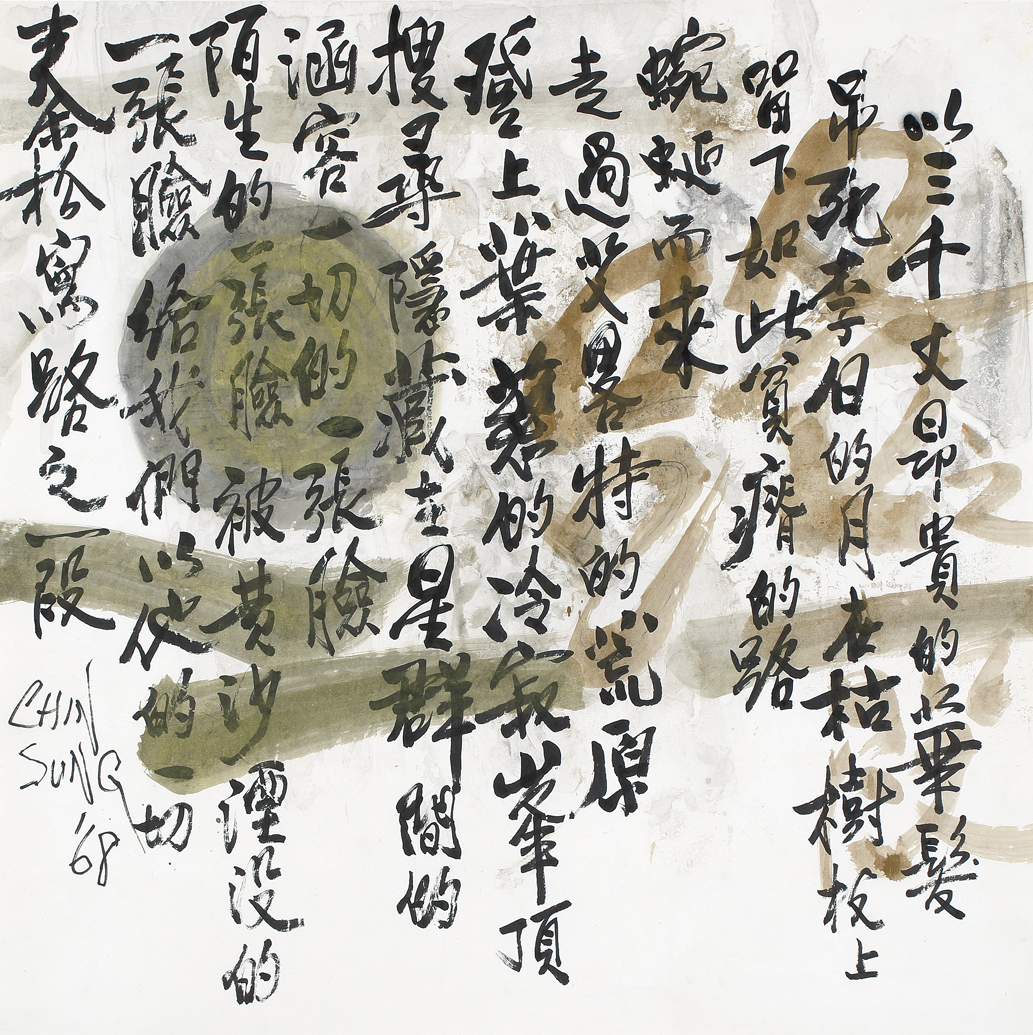 以三千丈昂貴的華髮
吊死李白的月在枯樹枝上
留下如此貧瘠的路
蜿蜒而來
走過艾畧特的荒原
登上葉慈的冷寂峯頂
搜尋隱藏在星群間的
涵容一切的一張臉
陌生的一張臉被黄沙湮没的
一張臉給我們以的一切
秦松寫路之一段
CHIN
SUNG
'68